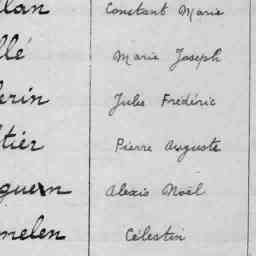 lan Constant Marie
llé Marie Joseph
erin Jules Frédéric
tier Pierre Auguste
guern Alexis Noël
melen Célestin